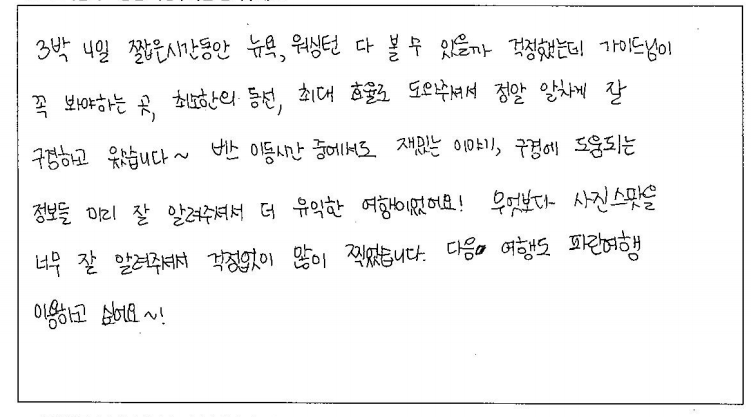 3박 4일 짧은시간동안 뉴욕, 워싱턴 다 볼 수 있을까 걱정했는데 가이드님이
꼭 봐야하는 곳, 최소한의 동선, 최대 효율로 도와주셔서 정말 알차게 잘
구경하고 왔습니다~ 버스 이동시간 중에서도 재밌는 이야기, 구경에 도움되는
정보들 미리 잘 알려주셔서 더 유익한 여행이었어요! 무엇보다 사진스팟을
너무 잘 알려주셔서 걱정없이 많이 찍었습니다. 다음 여행도 파란여행
이용하고 싶어요~!